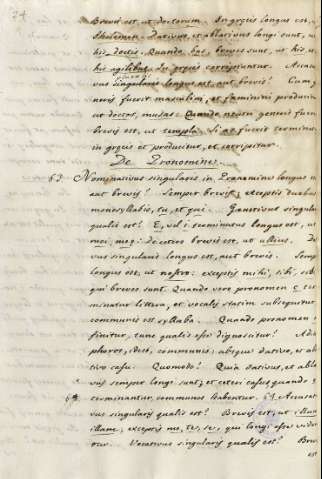 74
Brevis est, ut doctorum. In græcis longus est,
Dativus, et ablativus longi sunt, u
his doctis. Quando hac breves sunt, ut his
his agilibus. In græcis corripiuntur. Accusa
vus singularis longus est, aut brevis? Cum
neris fuerit masculini, et fæminini producu
ut doctos, musas: Quando neutri generis fueri
brevis est, ut templa. Si as fuerit termina
in græcis et producitur, et corripitur.
De Pronomine.
63. Nominativus singularis in Pronomine longus
aut brevis? Semper brevis, exceptis duobus
monosyllabis, tu, et qui. Genetivus singula
qualis est? E, vel i terminatus longus est, u
mei, meq: de cetero brevis est, ut ullius. Da
vus singularis longus est, aut brevis. Sem
longus est, ut nostro: exceptis mihi, tibi, sibi
qui breves sunt. Quando vero pronomen c ter
minatur littera, et vocalis statim subsequitur
communis est syllaba. Quando pronomen
finitur, tunc qualis esse dignoscitur? Adia
phoros, idest, communis: absque dativo, et abla
tivo casu. Quomodo? Quia dativus, et abla
vus semper longi sunt, et ceteri casus quando
terminantur, communes habentur. 64. Accusat
vus singularis qualis est? Brevis est, ut illum
illam, exceptis me, te, se, qui longi esse viden
tur. Vocativus singularis qualis est? Brev
est